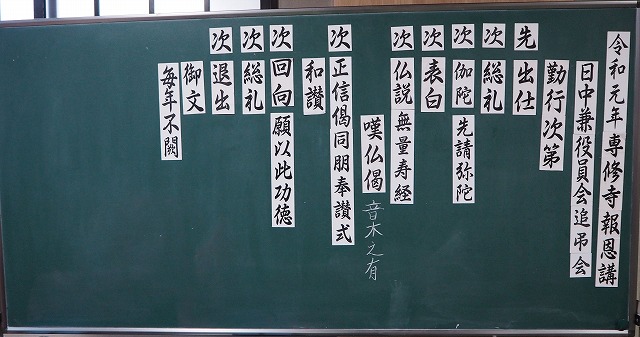 令和元年 専修寺報恩講
日中兼役員会追弔会
勤行次第
先 出仕
次 総礼
次 伽陀 先請弥陀
次 表白
次 仏説無量寿経
嘆仏偈 音木之有
次 正信偈同朋奉讃式
和讃
次 回向 願以此功徳
次 総礼
次 退出
御文
毎年不闕